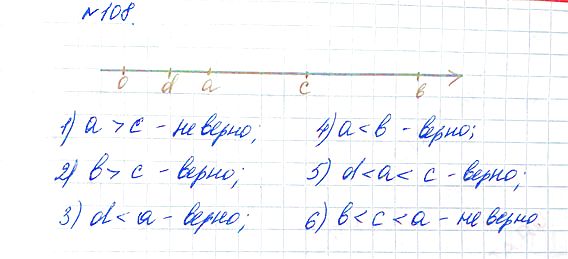 №108.
0 d a c b
1) a > c - неверно;
2) b > c - верно;
3) d < a - верно;
4) a < b - верно;
5) d < a < c - верно;
6) b < c < a - неверно.